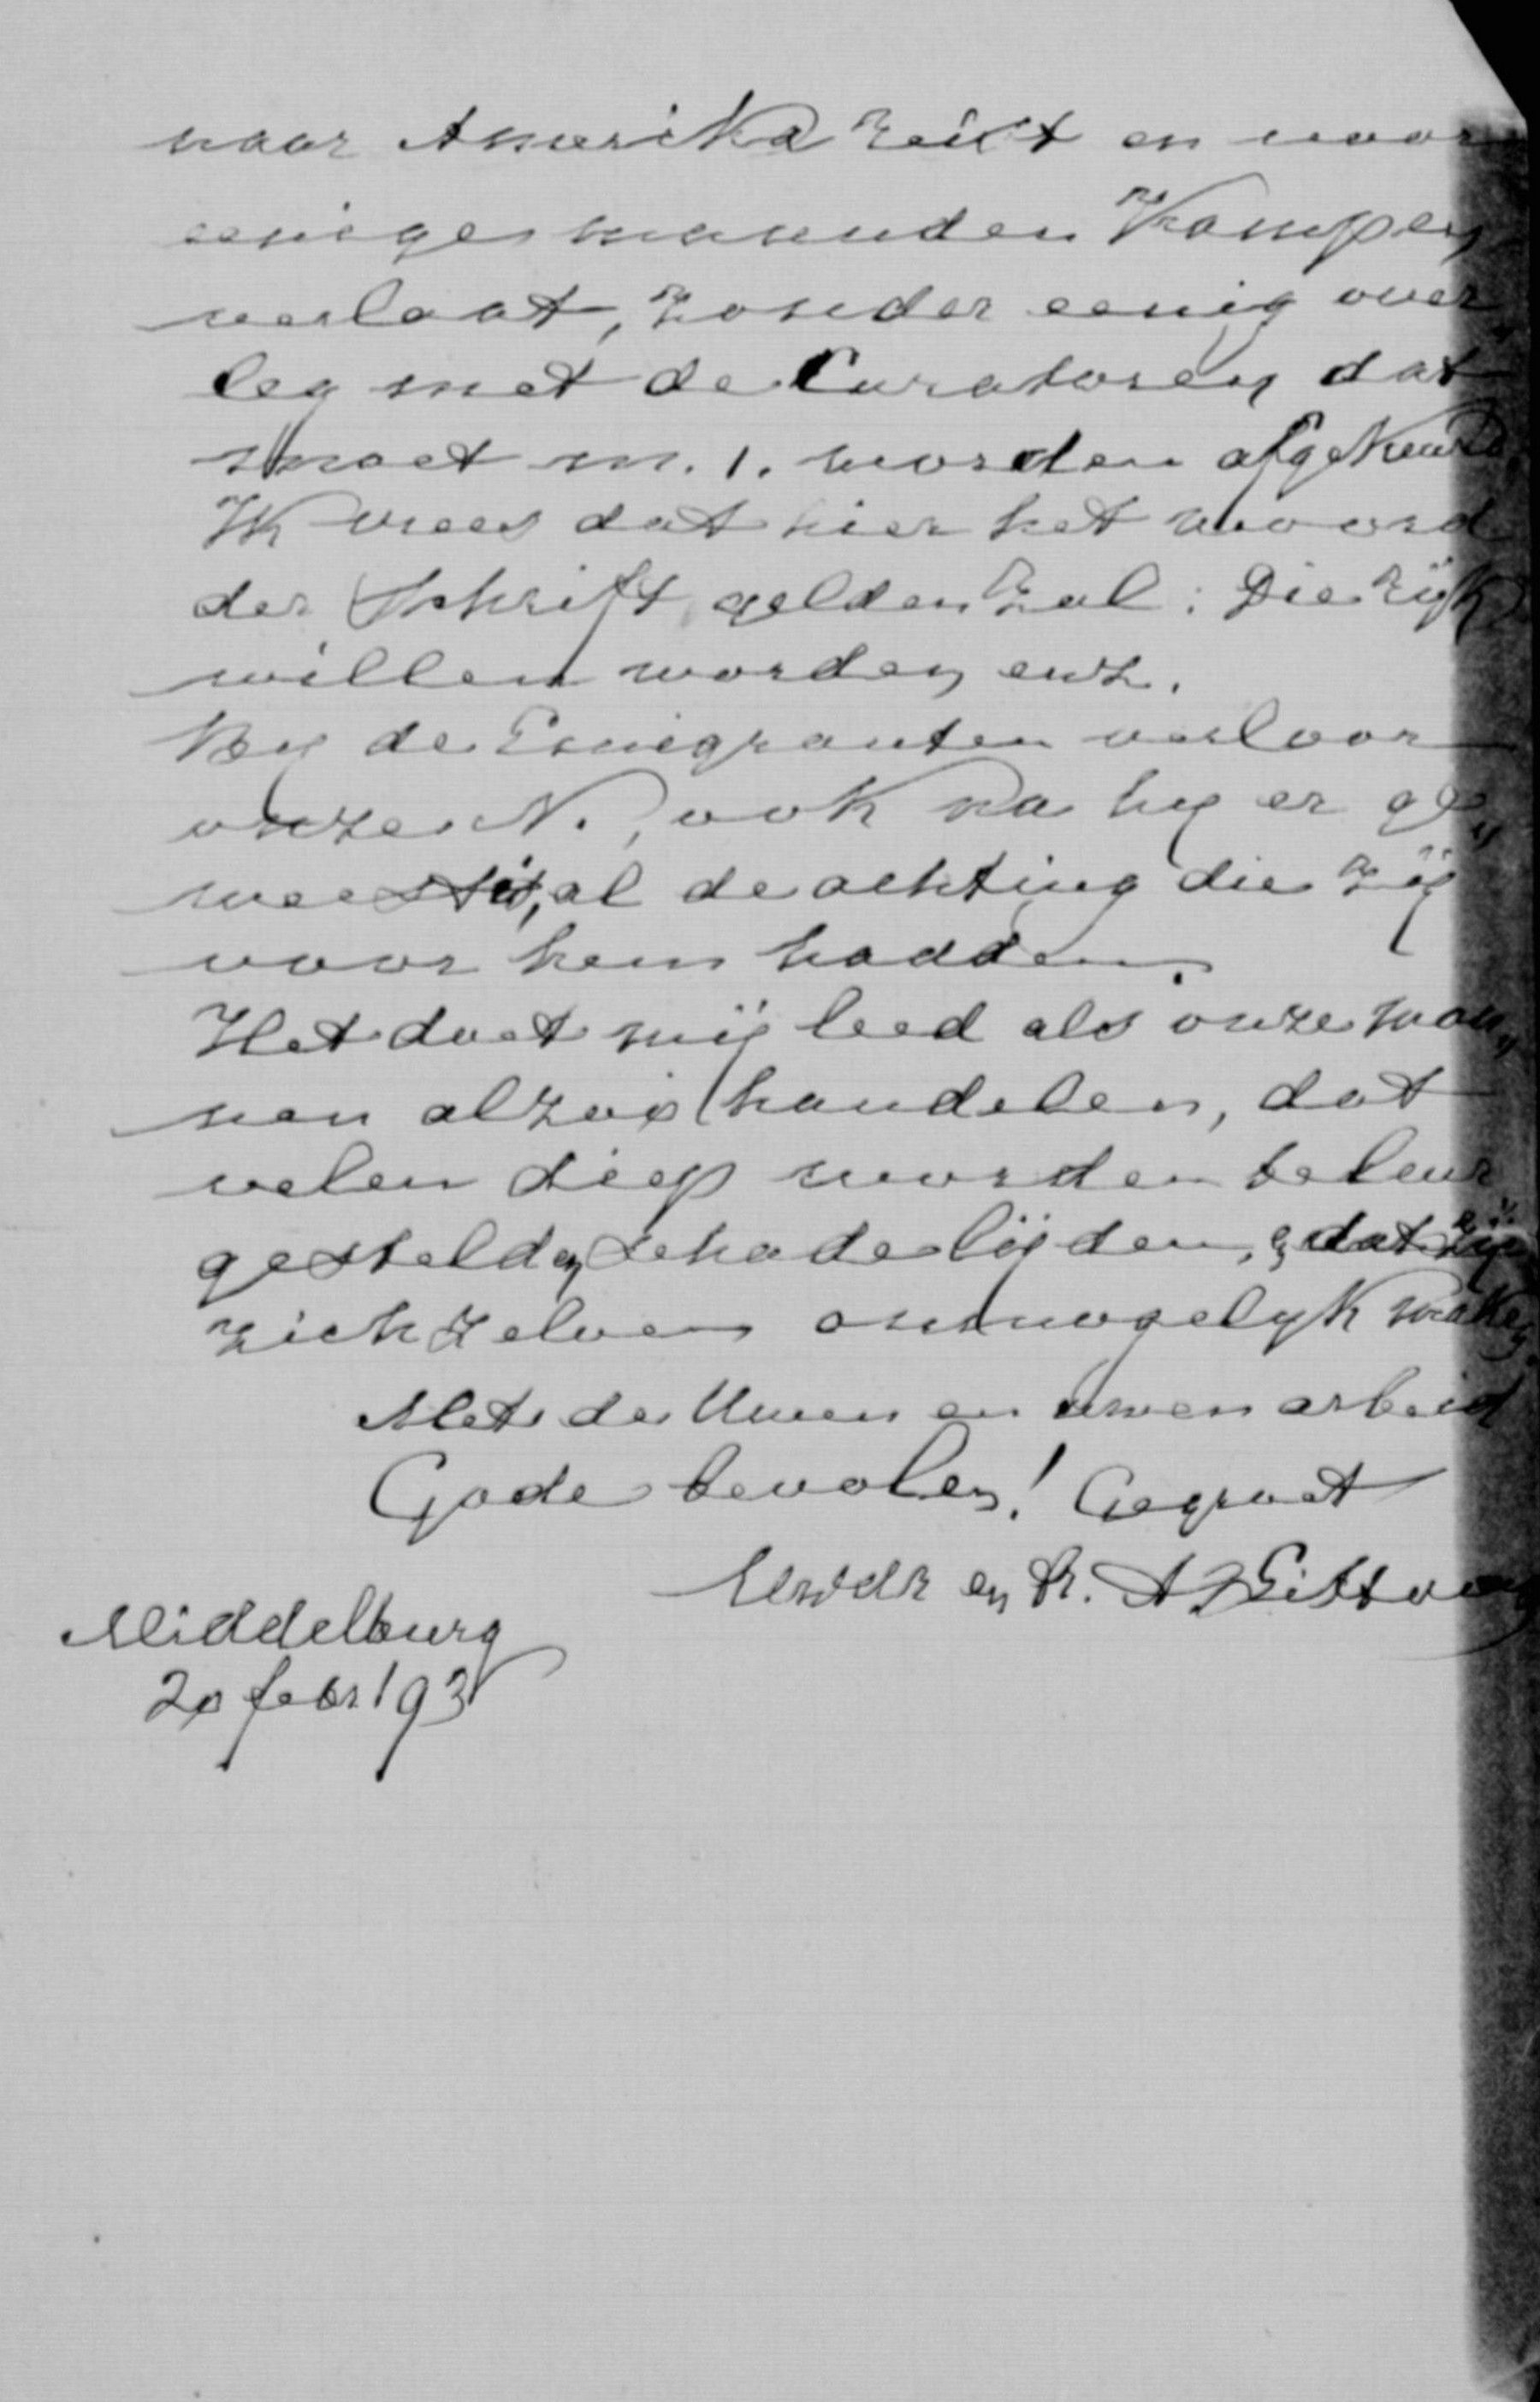 naar Amerika reist en voor
eenige maanden Kampen
verlaat, zonder eenig over„
leg met de Curatoren dat
moet m. i. worden afgekeurd.
Ik vrees dat hier het woord
der Schrift gelden zal: Die rijk
willen worden enz.
By de Emigranten verloor
onze N., ook na hy er ge„
weest is, al de achting die zij
voor hem hadden.
Het doet mij leed als onze man„
nen alzoo handelen, dat
velen diep worden teleur
gesteld en schade lijden, en dat zij
zich zelven onmogelyk maken.
Met de Uwen en uwen arbeid
Gode bevolen! Gegroet
Uwdr en br.
Middelburg
20 febr 93